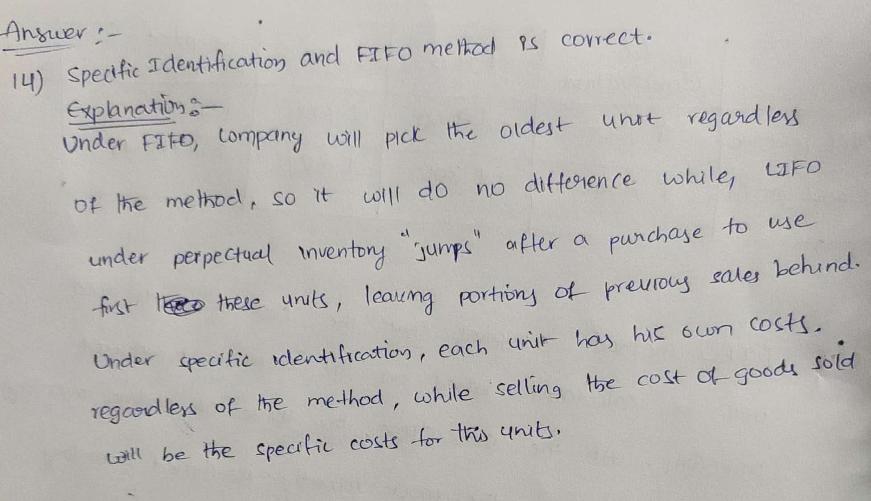 Answer :-
14) Specific Identification and FIFO method is correct.
Explanation :-
Under FIFO, Company will pick the oldest unit regardless
of the method, so it will do no difference while, LIFO
under perpectual inventory "jumps" after a purchase to use
first these units, leaving portions of previous sales behind.
Under specific identification, each unit has his own costs.
regardless of the method, while selling the cost of goods sold
will be the specific costs for this units.